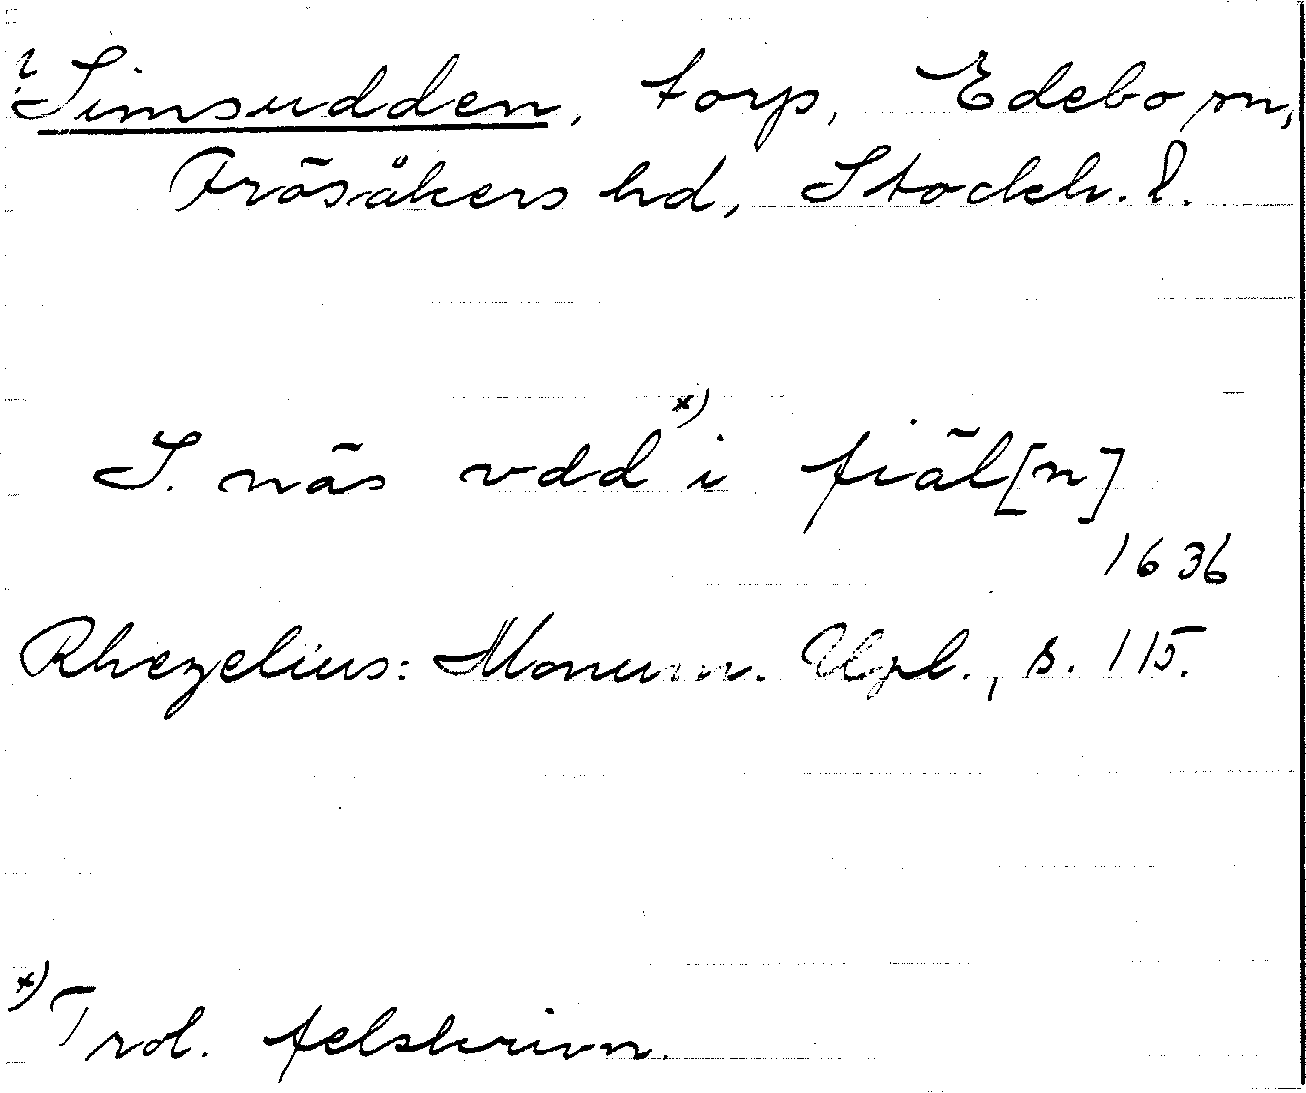 ? Simsudden, torp, Edebo sn,
Frösåkers hd, Stockh. l.
S. näs vdd x) i fiäl[n]
1636
Rhezelius: Monum. Upl., s. 115.
x) Trol. felskrivn.